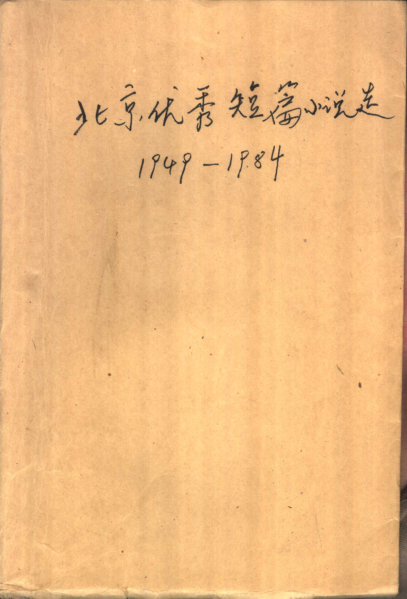 北京优秀短篇小说选
1949-1984